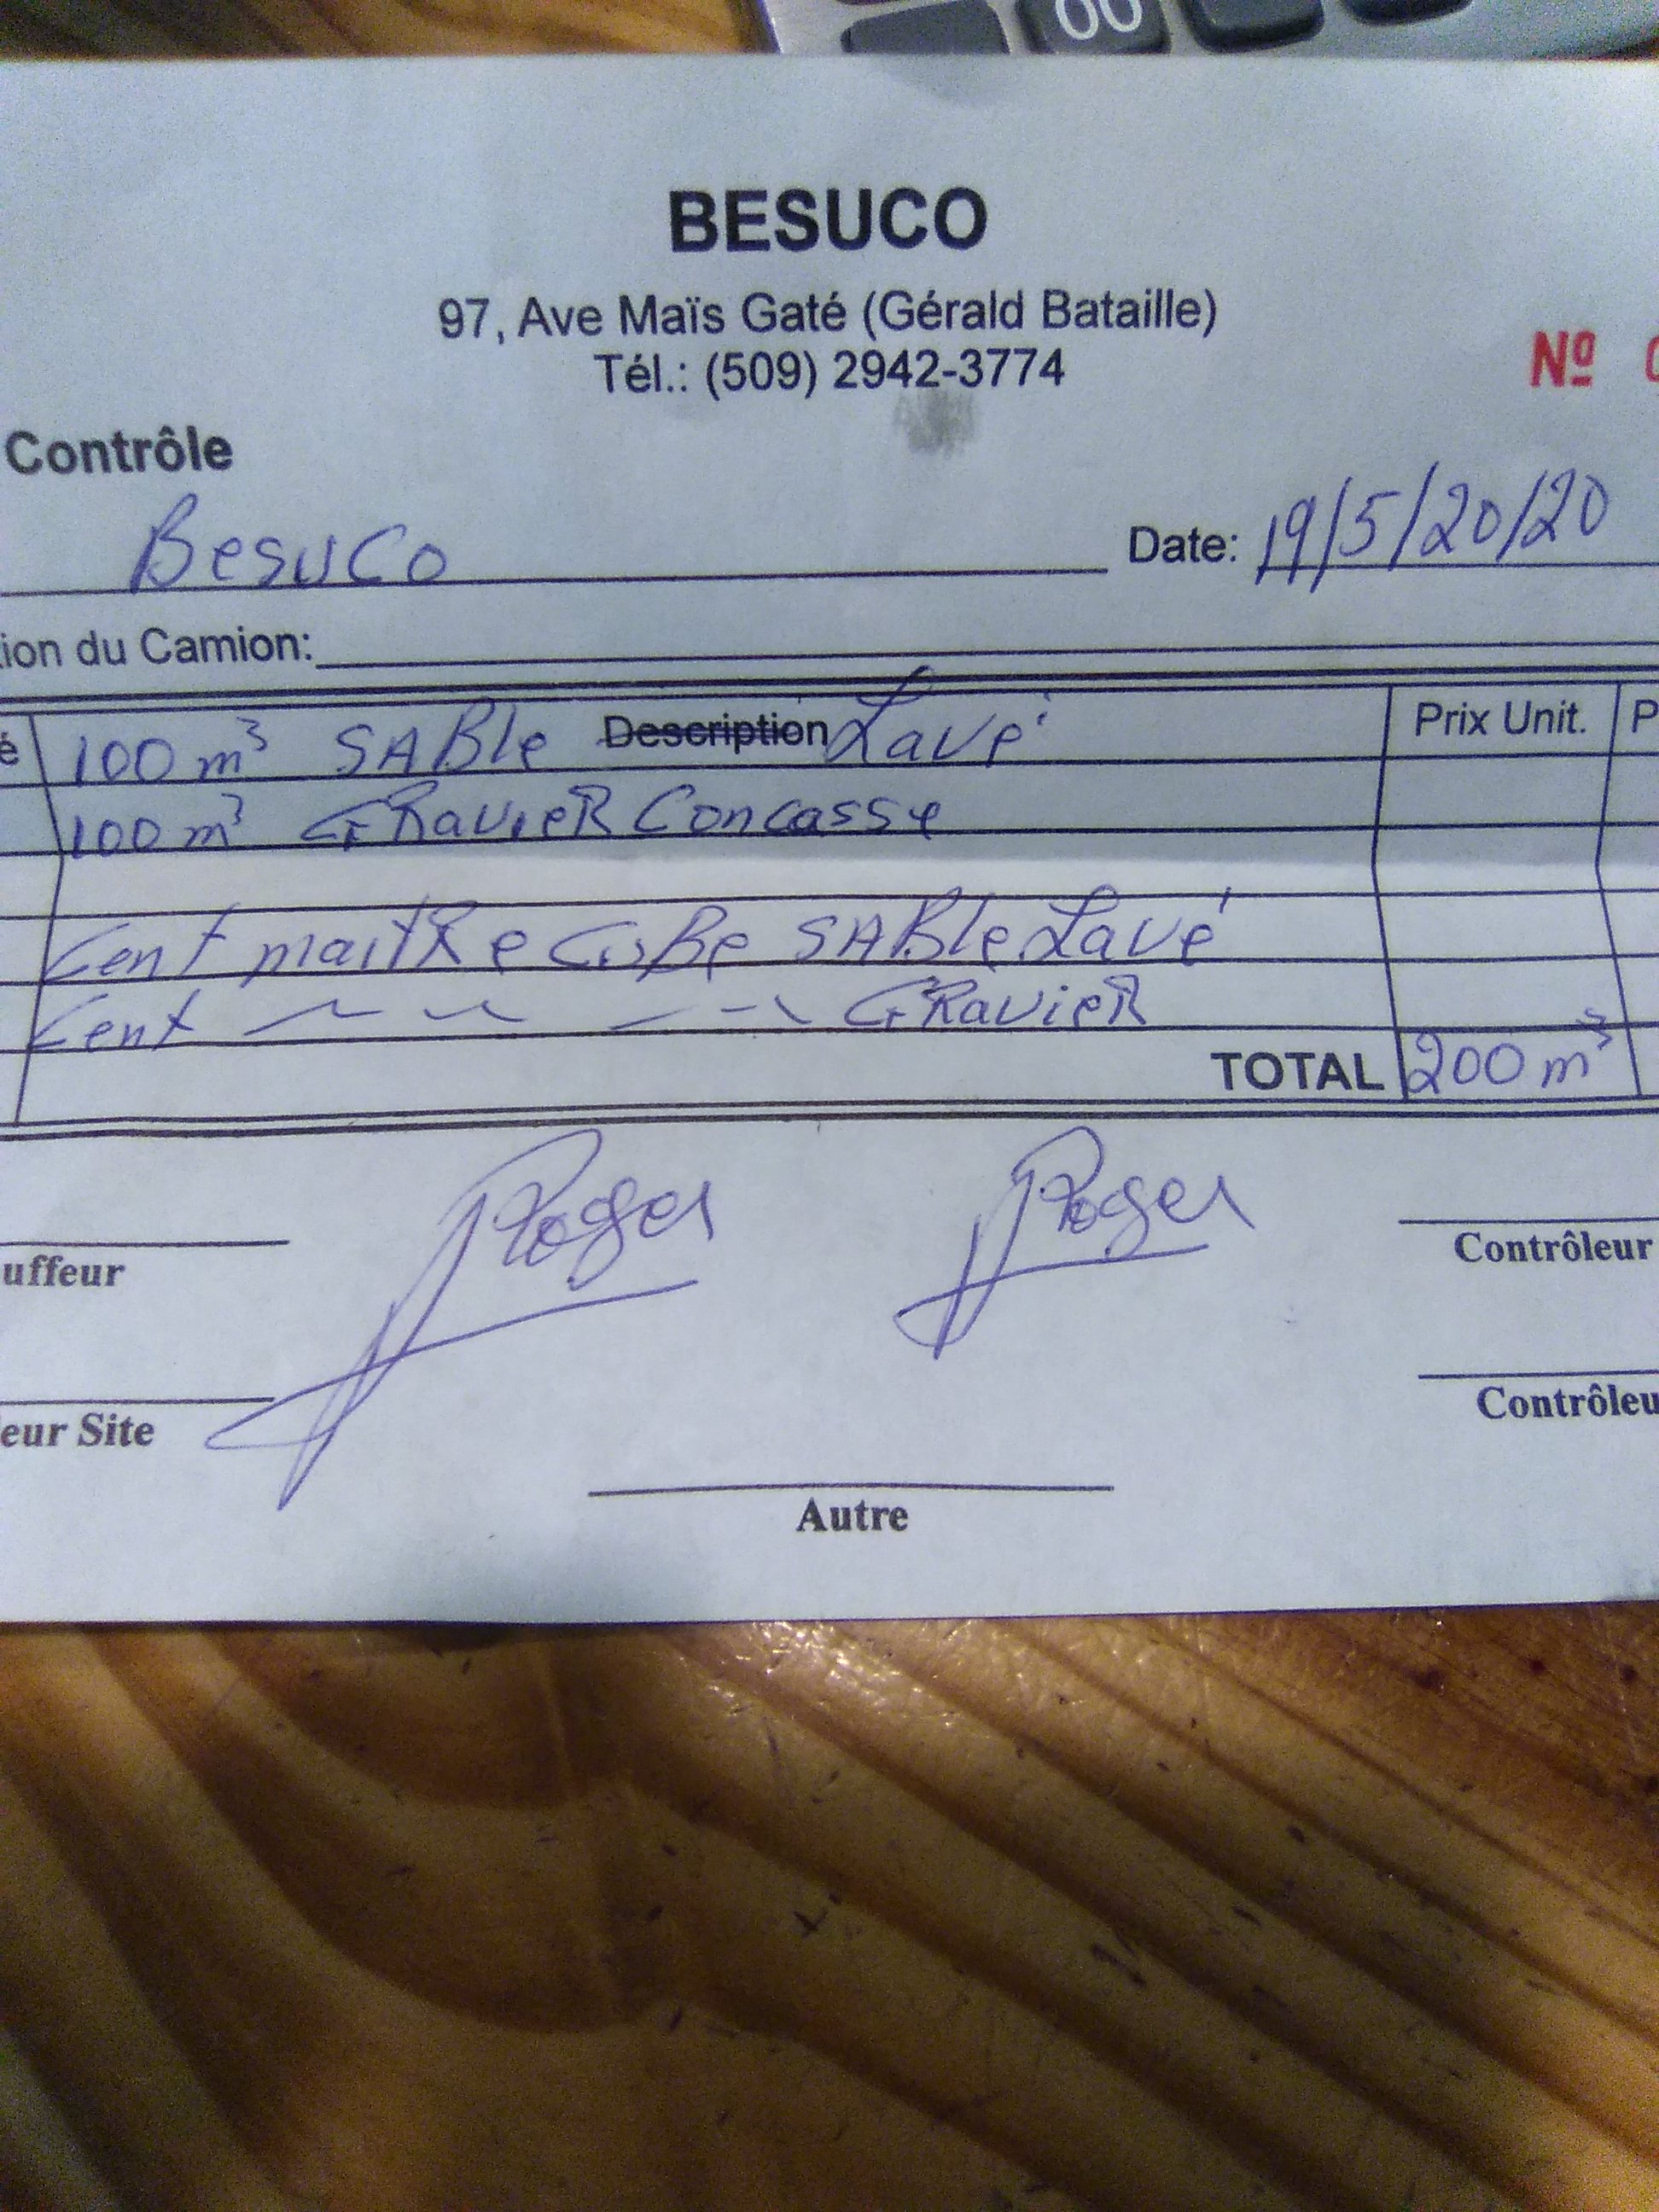 00
BESUCO
97, Ave Maïs Gaté (Gérald Bataille)
Tél.: (509) 2942-3774
Nº 0
Contrôle
Besuco Date: 19/5/20/20
ion du Camion:
é 100 m³ SABle Description Lavé Prix Unit. P
100 m³ GRavieR Concasse
Cent maitRe CuBe SABle Lavé
Cent GRavieR
TOTAL 200 m³
Roger Roger
uffeur Contrôleur
eur Site Contrôleu
Autre